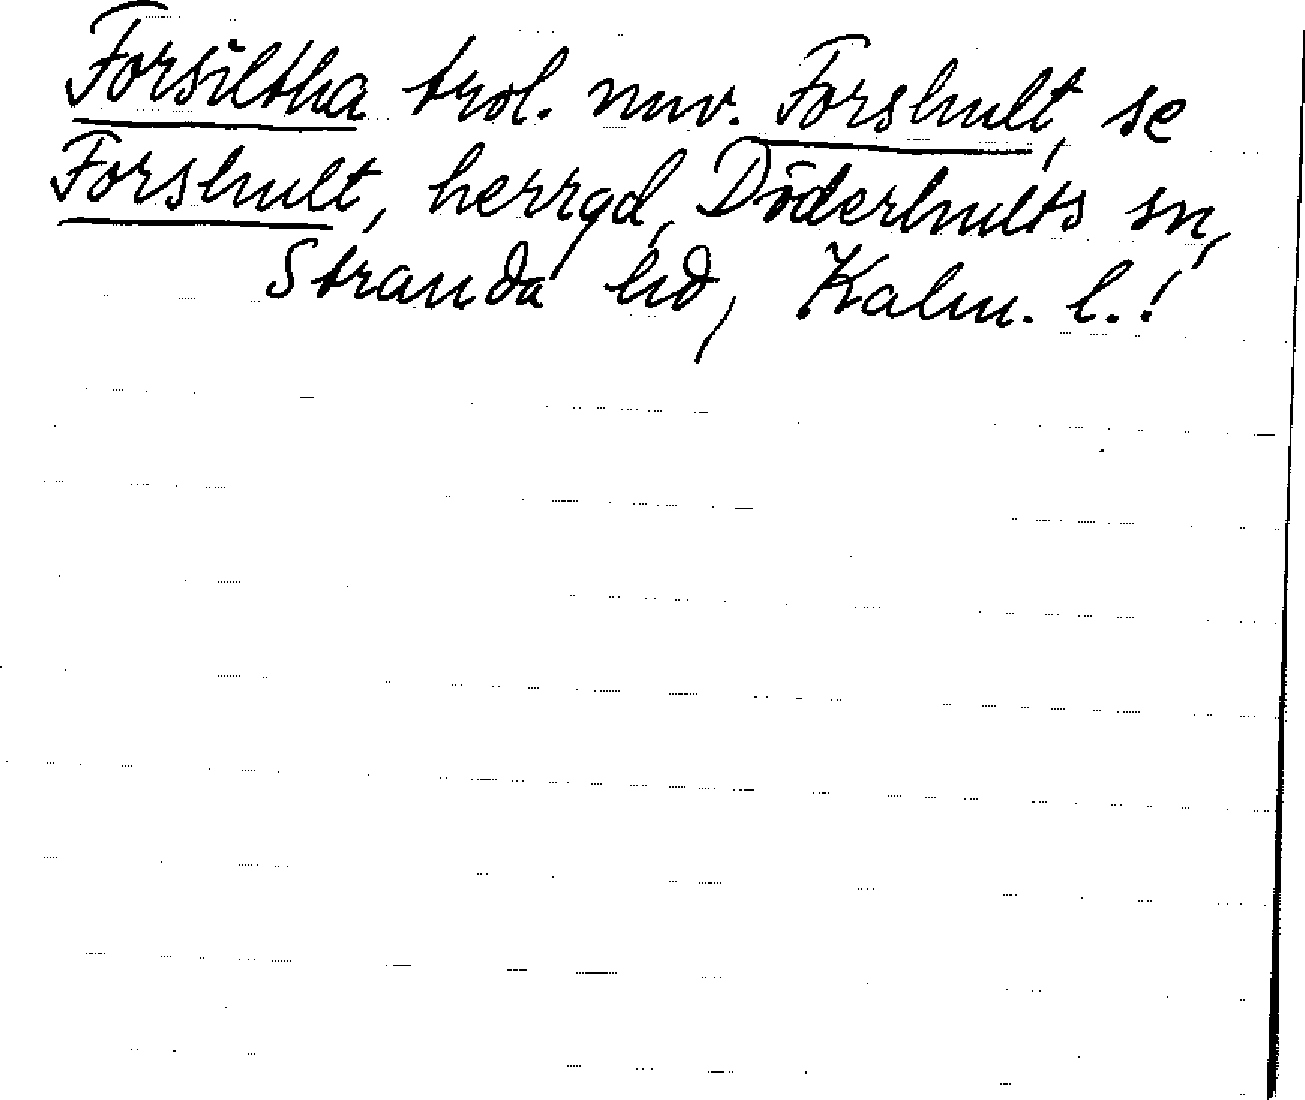 Forsiltha trol. nuv. Forshult, se
Forshult, herrgd, Döderhults sn,
Stranda hd, Kalm. l.!